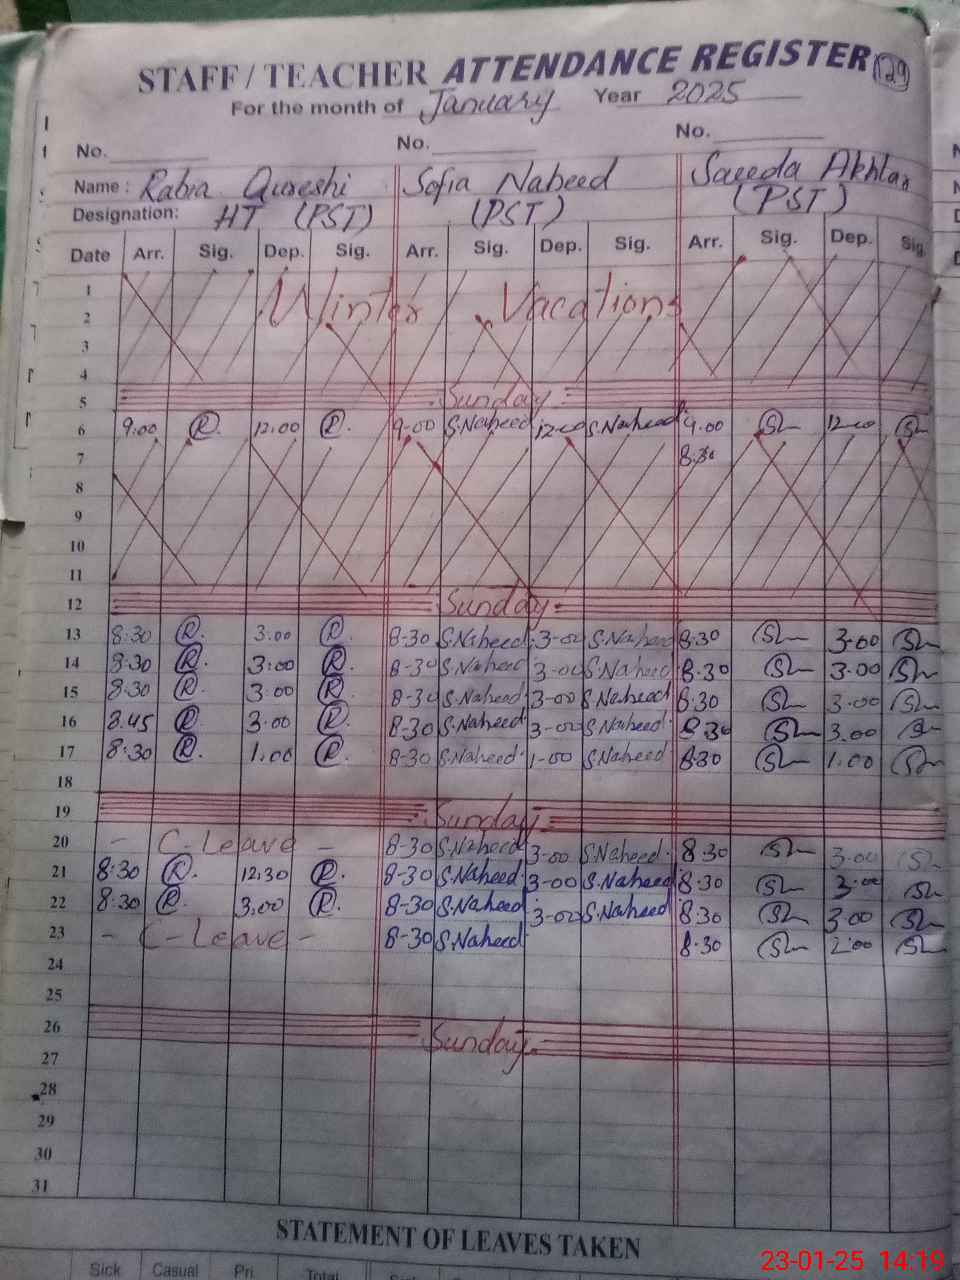 STAFF / TEACHER ATTENDANCE REGISTER 129
For the month of January Year 2025
No. No. No.
Name : Rabia Qureshi Sofia Naheed Saeeda Akhtar
Designation: HT (PST) (PST) (PST)
Date Arr. Sig. Dep. Sig. Arr. Sig. Dep. Sig. Arr. Sig. Dep. Sig.
1
2 Winter Vacations
3
4
5 Sunday
6 9.00 R. 12.00 R. 9-00 S.Naheed 12-00 S.Naheed 9.00 12-00
7 8.30
8
9
10
11
12 Sunday
13 8:30 R. 3.00 R. 8-30 S.Naheed 3-00 S.Naheed 8.30 3.00
14 8.30 R. 3:00 R. 8-30 S.Naheed 3-00 S.Naheed 8.30 3.00
15 8.30 R. 3.00 R. 8-30 S.Naheed 3-00 S.Naheed 8.30 3.00
16 8.45 R. 3.00 R. 8-30 S.Naheed 3-00 S.Naheed 8.30 3.00
17 8:30 R. 1.00 R. 8-30 S.Naheed 1-00 S.Naheed 8.30 1.00
18
19 Sunday
20 - C-Leave - 8-30 S.Naheed 3-00 S.Naheed 8.30 3.00
21 8:30 R. 12.30 R. 8-30 S.Naheed 3-00 S.Naheed 8.30 3.00
22 8:30 R. 3.00 R. 8-30 S.Naheed 3-00 S.Naheed 8.30 3.00
23 - C-Leave - 8-30 S.Naheed 8.30 2.00
24
25
26 Sunday
27
28
29
30
31
STATEMENT OF LEAVES TAKEN
Sick Casual Pri Total
23-01-25 14:19